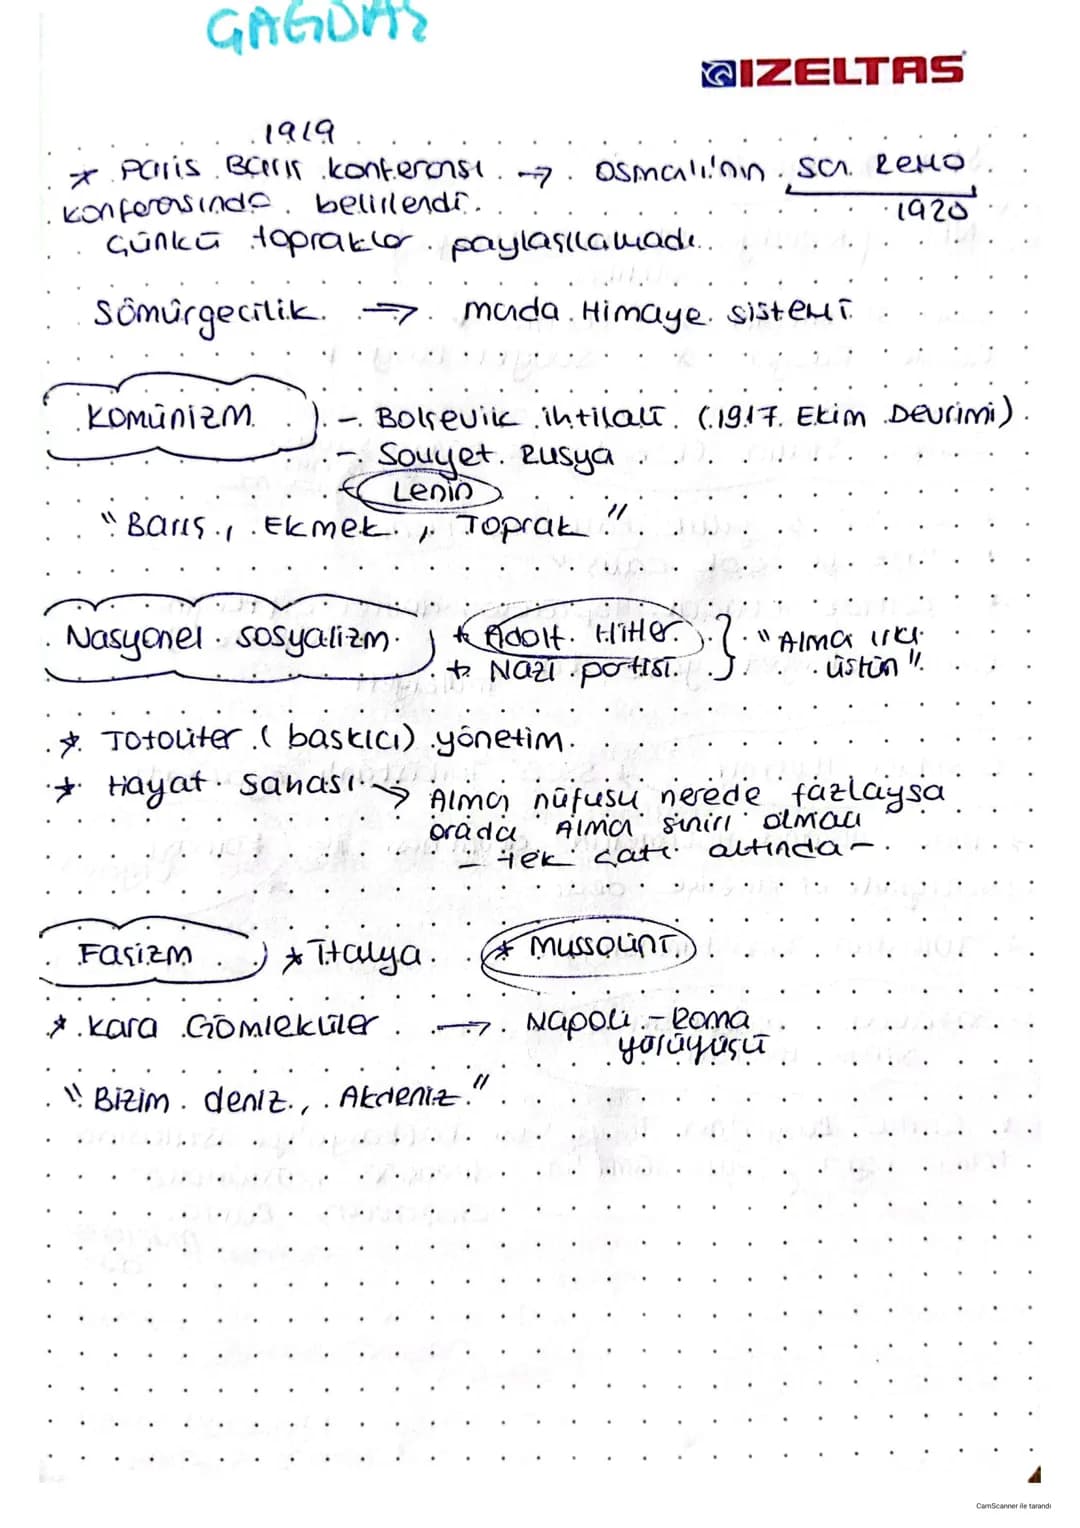 ÇAĞDAŞ
IZELTAS
1919
* Paris Barış konferansı → Osmanlı'nın San Remo
konferansında belirlendi. 1920
Çünkü topraklar paylaşılamadı.
Sömürgecilik. ⇒ manda Himaye sistemi
Komünizm - Bolşevik ihtilali (1917 Ekim Devrimi)
- Sovyet Rusya
Lenin
"Barış, Ekmek, Toprak"
Nasyonel sosyalizm * Adolf Hitler } "Alman ırkı
* Nazi partisi üstün"
* Totoliter (baskıcı) yönetim.
* Hayat Sahası → Alman nüfusu nerede fazlaysa
orada Alman sınırı olmalı
- tek çatı altında -
Faşizm * İtalya * Mussolini
* Kara Gömlekliler → Napoli - Roma
yürüyüşü
"Bizim deniz, Akdeniz"
CamScanner ile tarandı